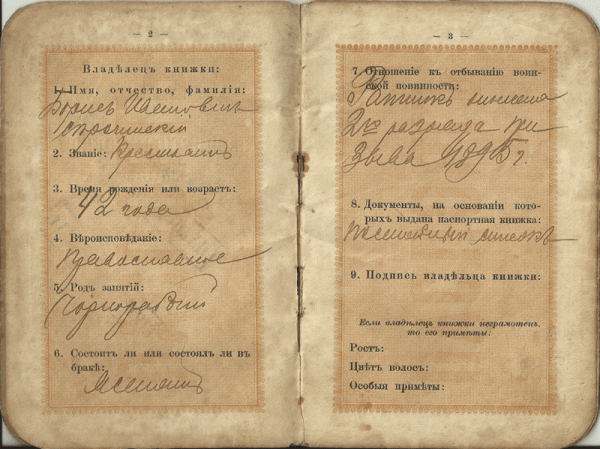 — 2 —
Владѣлецъ книжки:
1. Имя, отчество, фамилія:
Борисъ
2. Званіе: Крестьянинъ
3. Время рожденія или возрастъ:
42 года
4. Вѣроисповѣданіе:
Православное
5. Родъ занятій:
Чорнорабочій
6. Состоитъ ли или состоялъ ли въ
бракѣ:
Женатъ
— 3 —
7. Отношеніе къ отбыванію воин-
ской повинности:
Ратникъ ополченія
2го разряда при
зыва 1895 г.
8. Документы, на основаніи кото-
рыхъ выдана паспортная книжка:
Посемейный списокъ
9. Подпись владѣльца книжки:
Если владѣлецъ книжки неграмотенъ,
то его примѣты:
Ростъ:
Цвѣтъ волосъ:
Особыя примѣты: